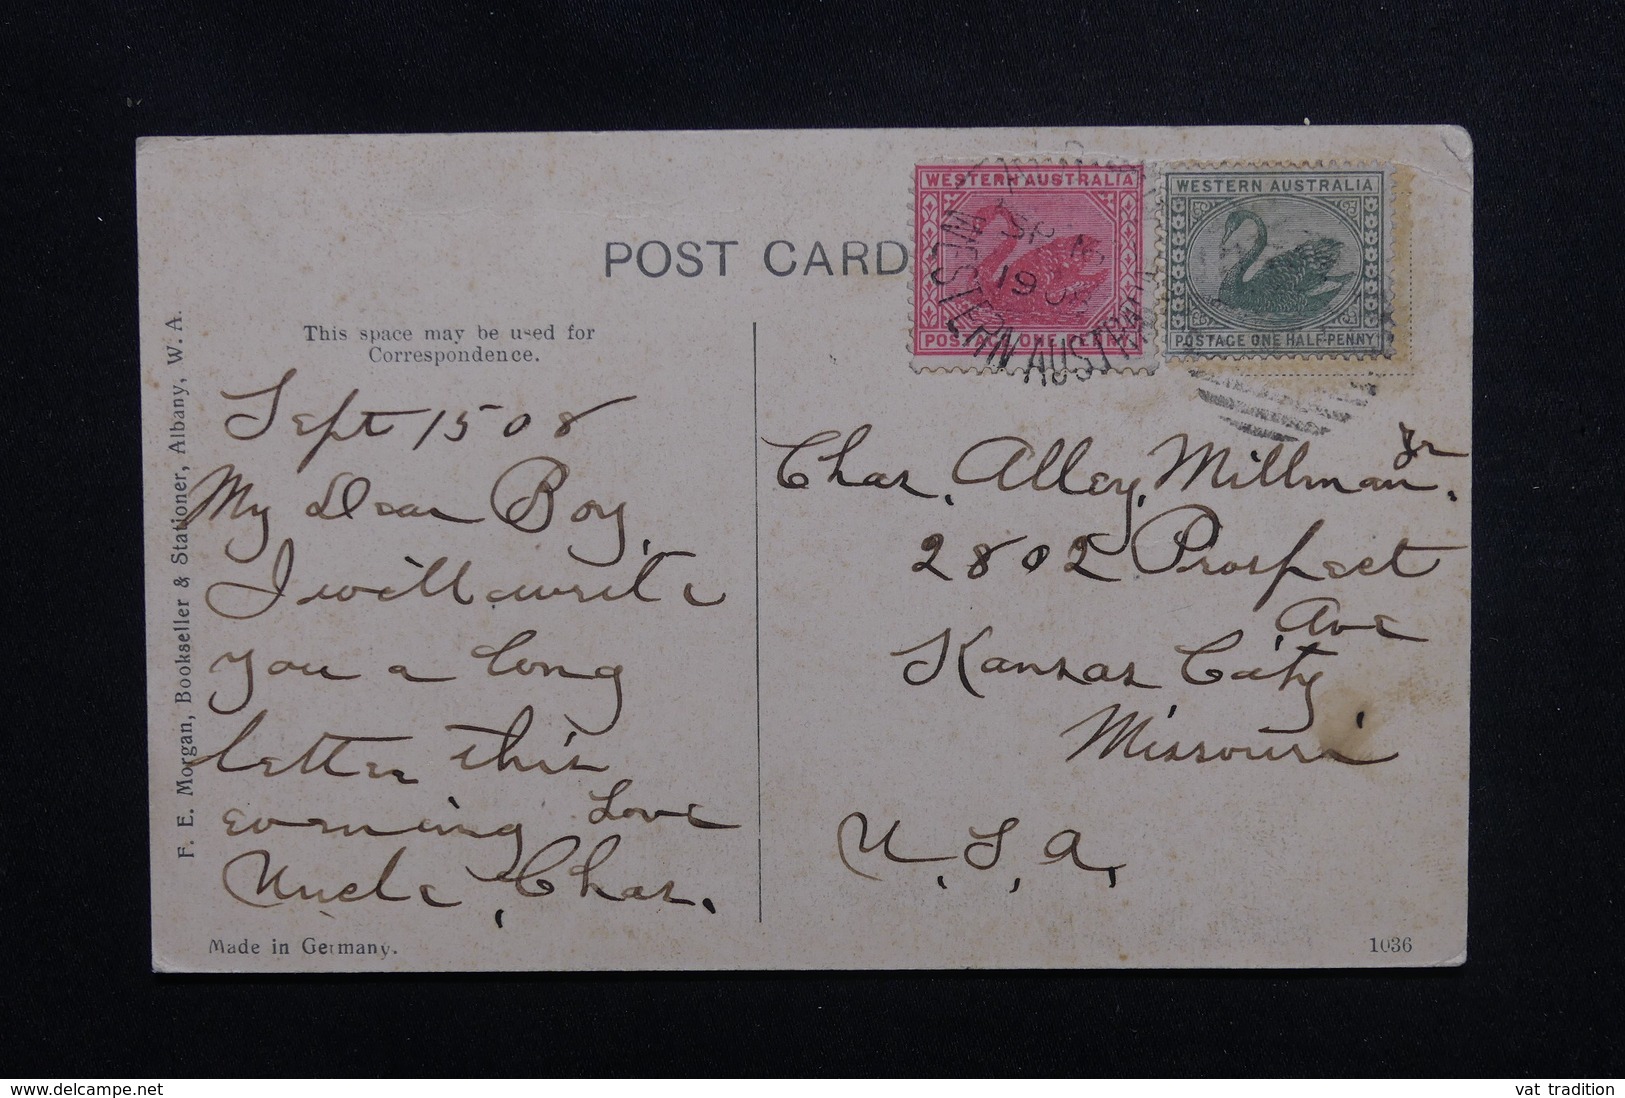 POST CARD
WESTERN AUSTRALIA
POSTAGE ONE PENNY
WESTERN AUSTRALIA
POSTAGE ONE HALF-PENNY
SP 16
1908
WESTERN AUSTRALIA
This space may be used for
Correspondence.
F. E. Morgan, Bookseller & Stationer, Albany, W. A.
Sept 15 08
My Dear Boy,
I will write
you a long
letter this
evening Love
Uncle Chas.
Chas. Alley Millman Jr.
2802 Prospect
Ave
Kansas City
Missouri
U.S.A.
Made in Germany.
1036
www.delcampe.net
vat tradition